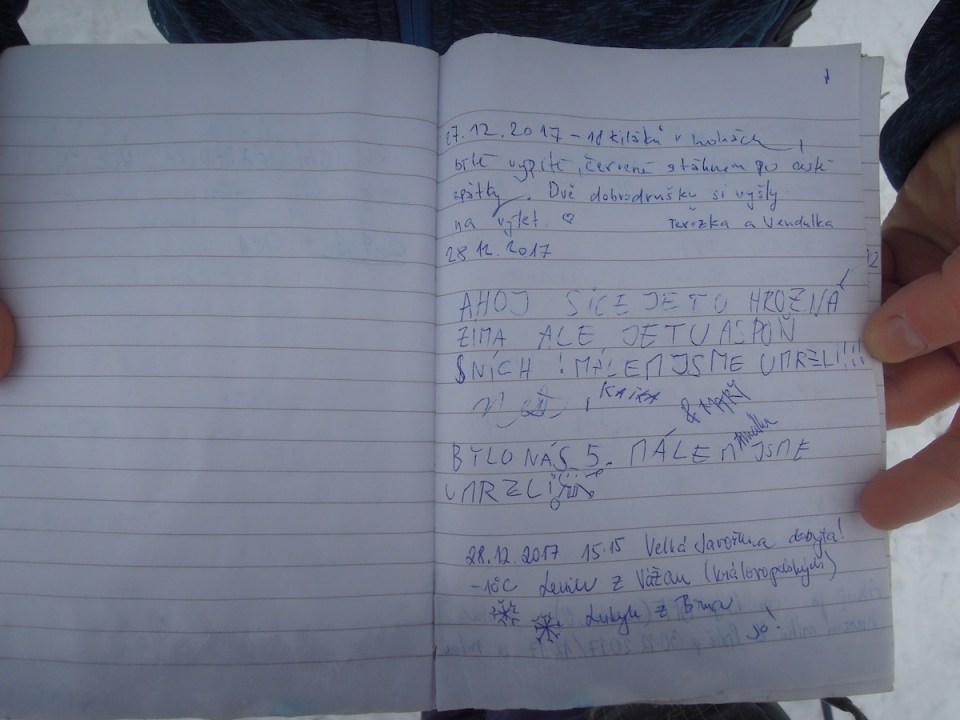 27.12.2017 - 18 kiláků v nohách,
bílé vypité, červené stáhnem po cestě
zpátky. Dvě dobrodružky si vyšly
na výlet. ♡ Terezka a Vendulka
28.12.2017
AHOJ SICE JE TU HROZNÁ
ZIMA ALE JE TU ASPOŇ
SNÍCH ! MÁLEM JSME UMRZLI!!!
&
BYLO NÁS 5. MÁLEM JSME
UMRZLI
28.12.2017 15.15 Velká Javořina dobyta!
-10°C z Vážan (Královopolských)
z Brna
Jo!
12